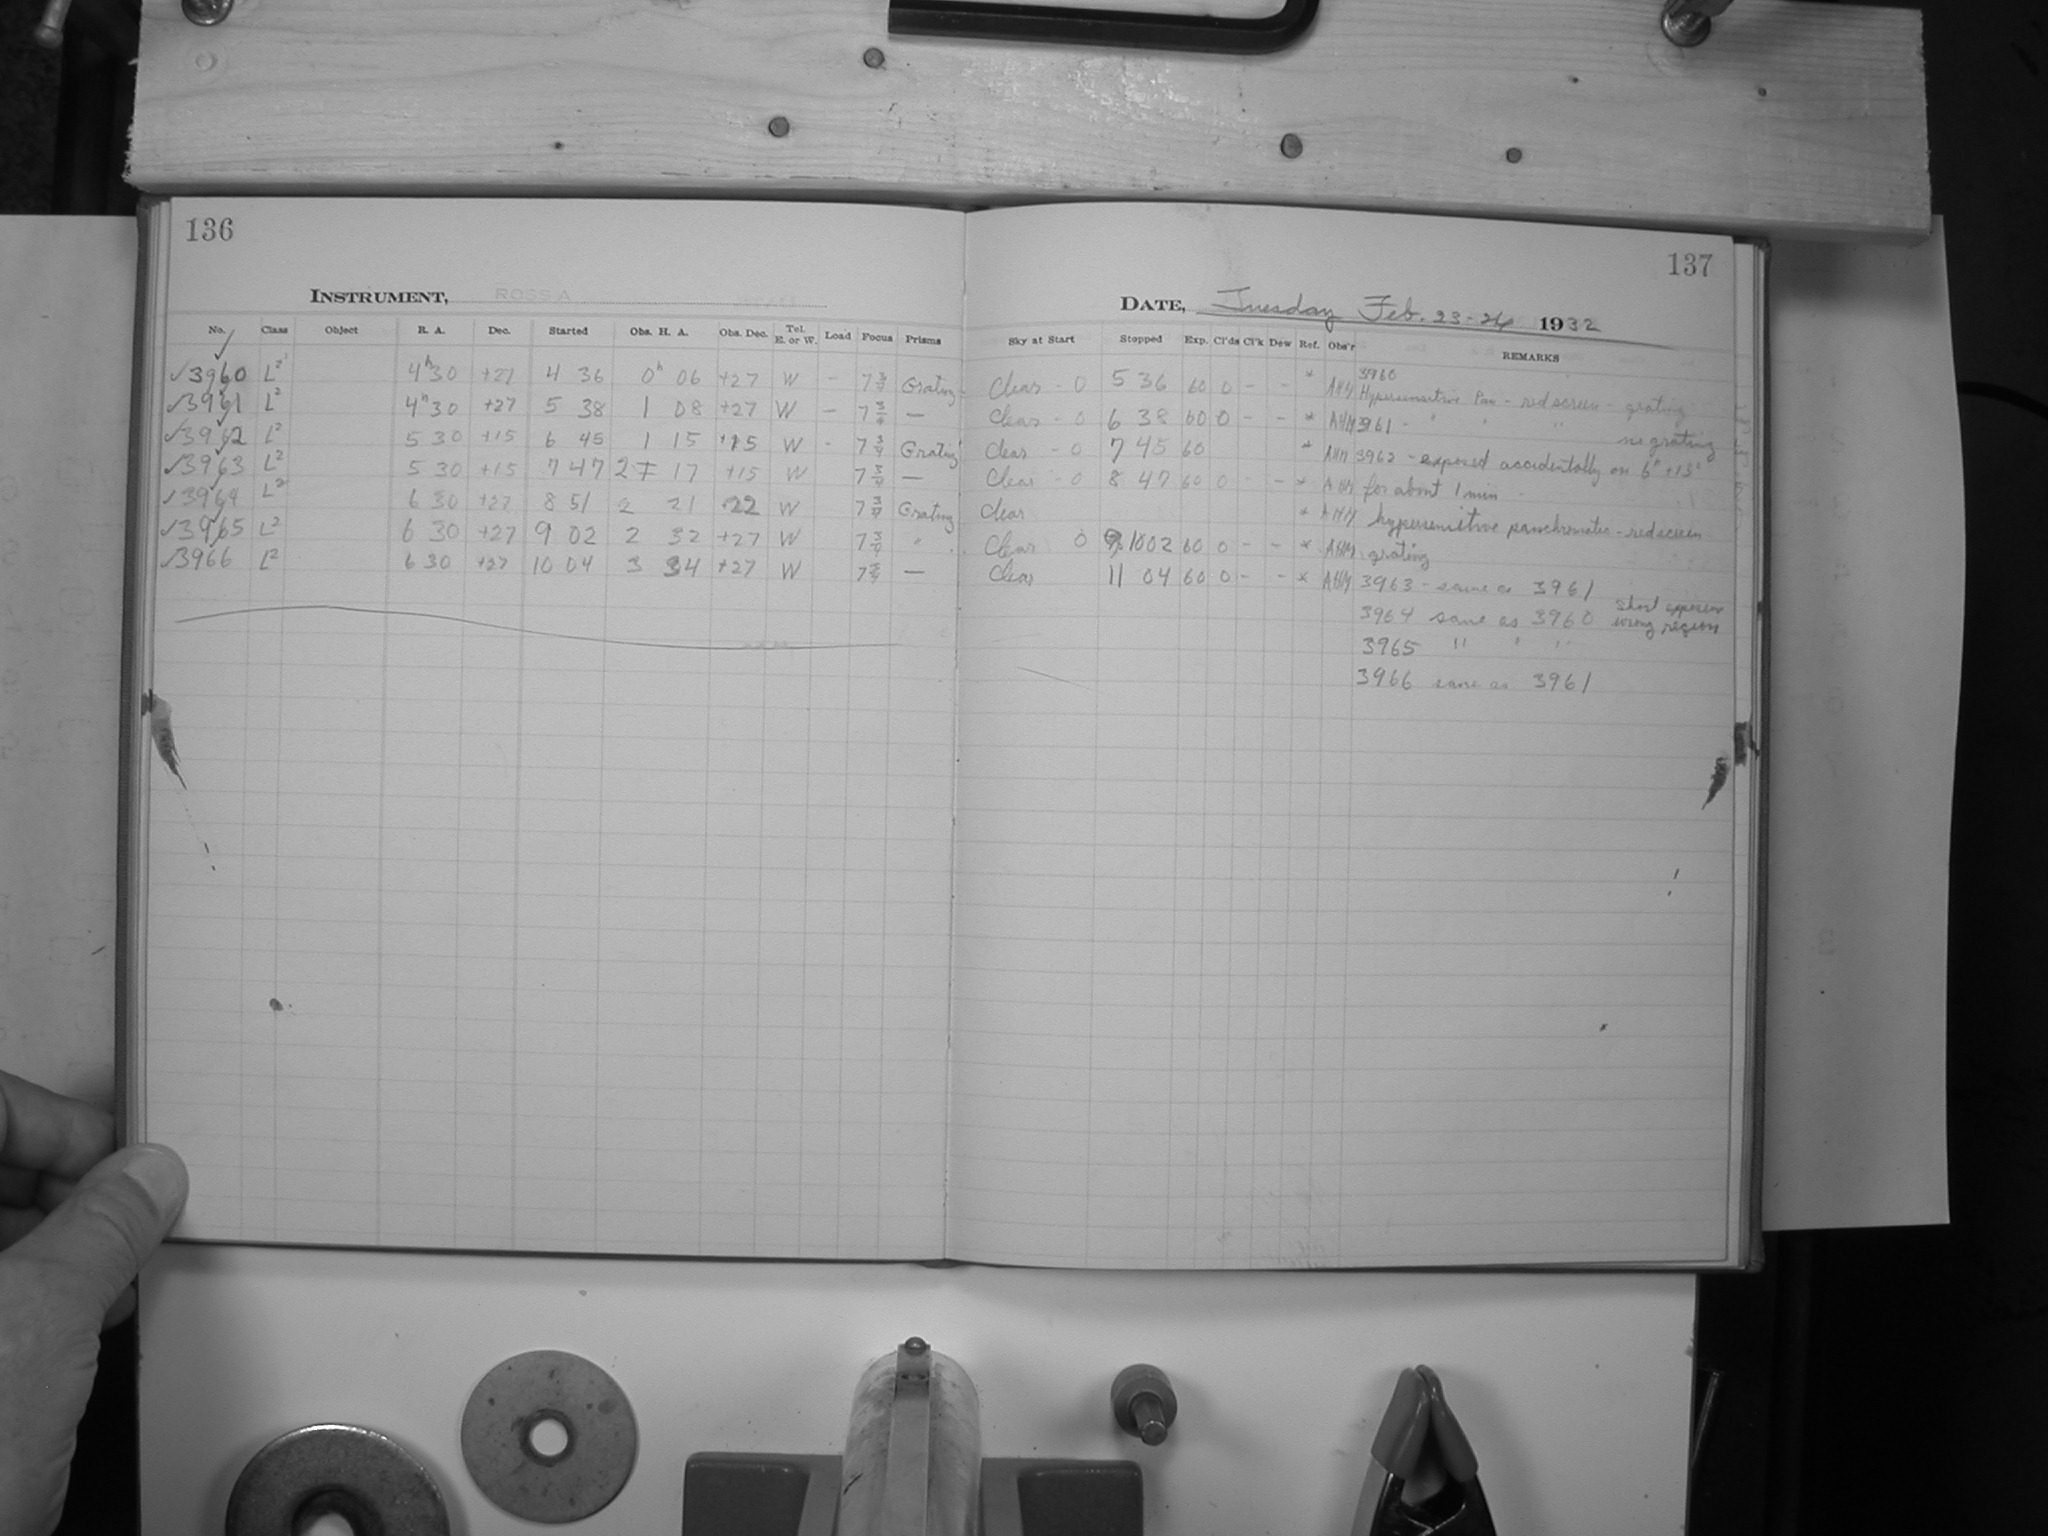 136
INSTRUMENT, ROSS A
No. Class Object R. A. Dec. Started Obs. H. A. Obs. Dec. Tel. E. or W. Load Focus Prisms
✓3960 L² 4ʰ30 +27 4 36 0ʰ 06 +27 W - 7 3/4 Grating
✓3961 L² 4ʰ30 +27 5 38 1 08 +27 W - 7 3/4 —
✓3962 L² 5 30 +15 6 45 1 15 +15 W - 7 3/4 Grating
✓3963 L² 5 30 +15 7 47 2 17 +15 W 7 3/4 —
✓3964 L² 6 30 +27 8 51 2 21 22 W 7 3/4 Grating
✓3965 L² 6 30 +27 9 02 2 32 +27 W 7 3/4 "
✓3966 L² 6 30 +27 10 04 3 34 +27 W 7 3/4 —
137
DATE, Tuesday Feb. 23-24 1932
Sky at Start Stopped Exp. Cl'ds Cl'k Dew Ref. Obs'r REMARKS
3960
Clear - 0 5 36 60 0 - - * AHM Hypersensitive Pan - red screen - grating
Clear - 0 6 38 60 0 - - * AHM 3961 - " " " no grating
Clear - 0 7 45 60 * AHM 3962 - exposed accidentally on 6ʰ +15°
Clear - 0 8 47 60 0 - - * AHM for about 1 min
Clear * AHM hypersensitive panchromatic - red screen
Clear 0 10 02 60 0 - - * AHM grating
Clear 11 04 60 0 - - * AHM 3963 - same as 3961
3964 same as 3960 short exposure wrong region
3965 " " "
3966 same as 3961